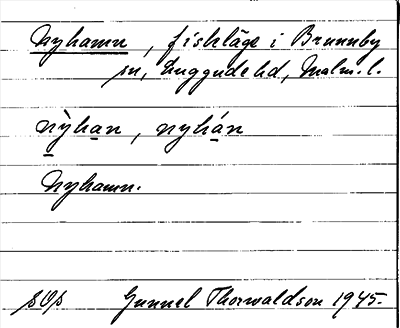 Nyhamn, fiskläge i Brunnby
sn, Luggude hd, Malm. l.
nỳhan, nyhán
Nyhamn.
Gunnel Thorwaldson 1945.